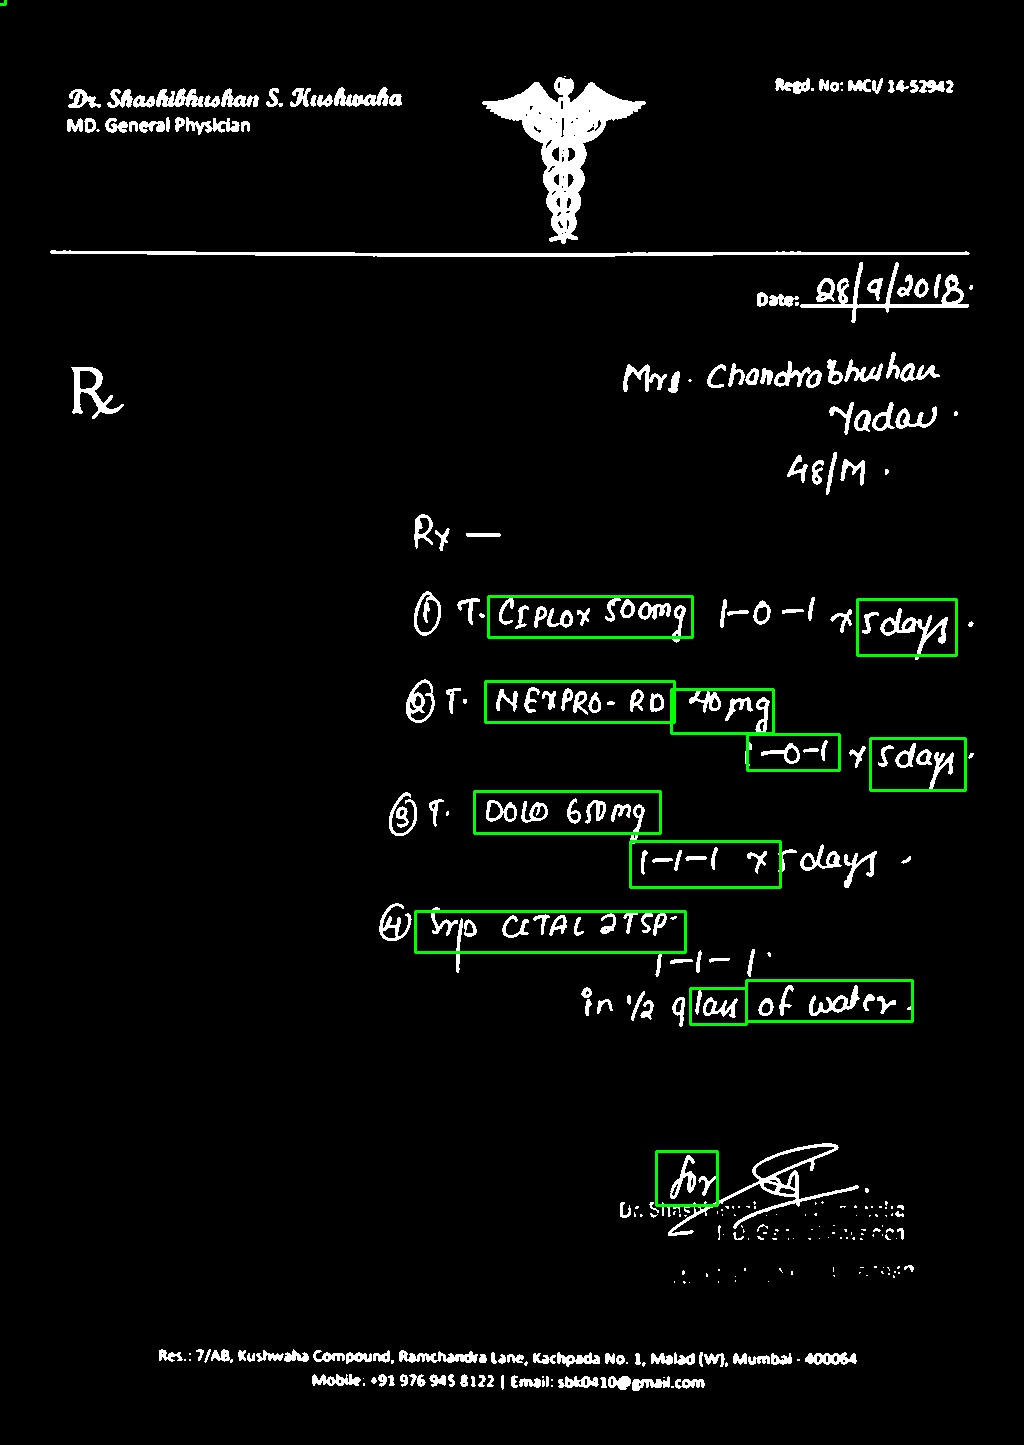 Dr. Shashibhushan S. Kushwaha
MD. General Physician
Regd. No: MCI/ 14-52942
Date: 28/9/2018.
Mrs. Chandrabhushan
Yadav.
48/M.
Rx
Rx —
① T. CIPLOX 500mg 1-0-1 x 5 days.
② T. NEXPRO-RD 40mg
1-0-1 x 5 days.
③ T. DOLO 650mg
1-1-1 x 5 days.
④ Syp CITAL 2TSP.
1-1-1.
in 1/2 glass of water.
for
Res.: 7/AB, Kushwaha Compound, Ramchandra Lane, Kachpada No. 1, Malad (W), Mumbai - 400064
Mobile: +91 976 945 8122 | Email: sbk0410@gmail.com